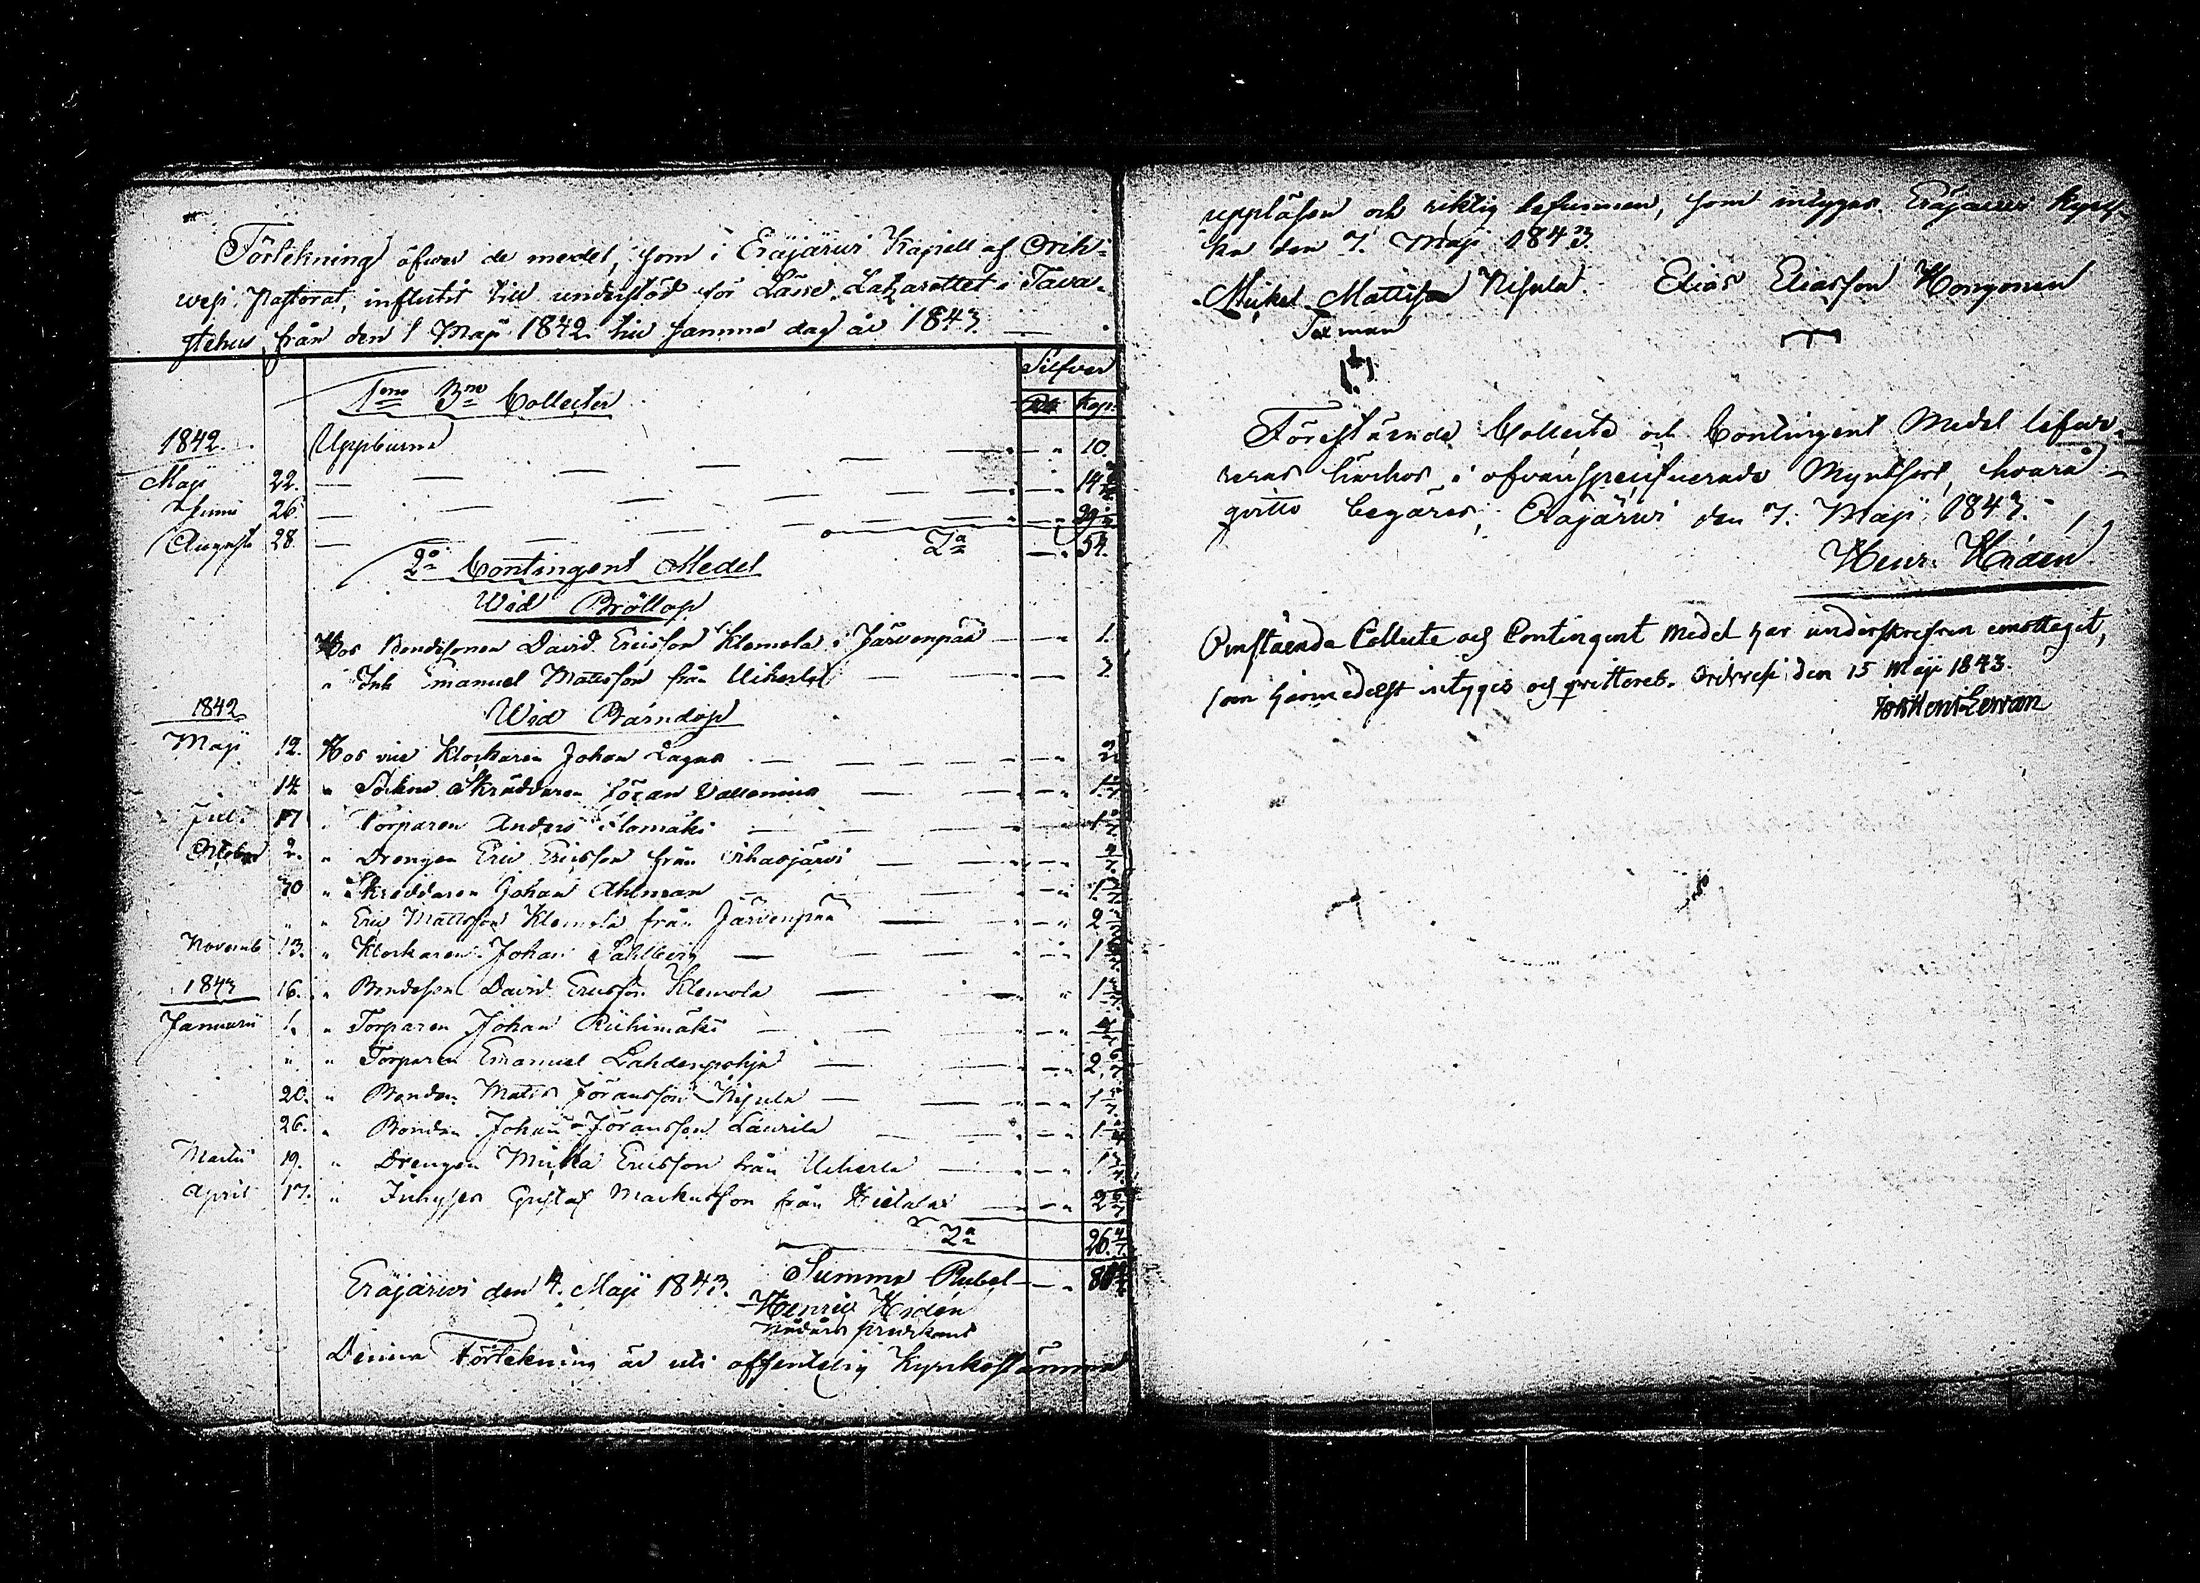 Förtekning öfwer de medel, som i Eräjärwi Kapell af Orih-
wesi Pastorat, influtit till understöd för Läne Lazarettet i Tava-
stehus, från den 1 Maji 1842 till samma dag år 1843
Silfver
1mo 3ne Collecter
Kop:
1842 Uppburne 10.
Maji 22. 14
Junii 26
Augusti 28. 54.
2o Contingent Medel
Wid Bröllop
Hos Bondesonen David Ericsson Klemola i Järvenpää 1.
" Inh Emanuel Mattsson från Uiherla
1842
Wid Barndop
Maji 12. Hos vice Klockaren Johan Lagus
14 " Sockne Skräddaren Jöran
Juli 17 " Torparen Anders
October 2. " Drengen Eric Ericsson från Vihasjärvi
30 " Skräddaren Johan Ahlman
" " Eric Mattsson Klemola från Järvenpää 2
Novemb 13. " Klockaren Johan Sahlberg 1
1843 16. " Bondeson David Ericsson Klemola 1
Januarii 1. " Torparen Johan Riihimäki
" " Torparen Emanuel Lahdenpohja 2 6/7
20. " Bonden Matts Jöransson Nisula 1
26. " Bonden Johan Jöransson Laurila 1
Martii 19. " Drengen Micka Ericsson från Uiherla 1
April 17. " Inhyses Gustaf Markusson från Hietalax 2 6/7
26 4/7
Eräjärwi den 4. Maji 1843. Summa Rubel
Henric Hidén
Nådårs predikant
Denna Förtekning är uti offentelig Kyrkostämma
uppläsen och riktig befunnen, som intygas. Eräjärwi Kyrk-
ka den 7. Maji 1843
Mickel Mattsson Nisula. Elias Eliasson Hongonen
Sexman
Förestående Collecte och Contingent Medel lefwe-
reras härhos i ofvanspecificerade Myntsort, hvarå
qvitto begäres; Eräjärwi den 7. Maji 1843.
Henr. Hidén
Omstående Collecte och Contingent Medel har underskrifven emottagit,
som härmedelst intygas och qvitteras. Orihvesi den 15 Maji 1843.